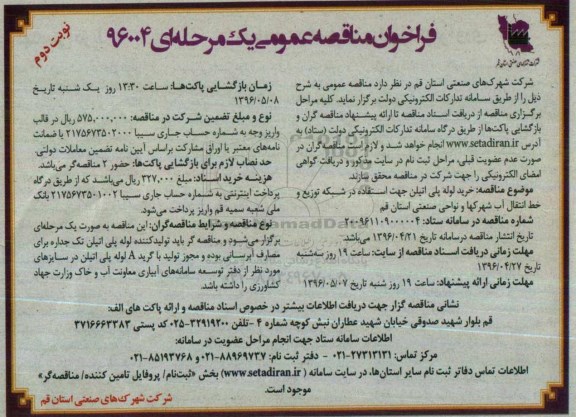 فراخوان مناقصه عمومی یک مرحله‌ای ۹۶۰۰۴
نوبت دوم
شرکت شهرک‌های صنعتی استان قم در نظر دارد مناقصه عمومی به شرح
ذیل را از طریق سامانه تدارکات الکترونیکی دولت برگزار نماید. کلیه مراحل
برگزاری مناقصه از دریافت اسناد مناقصه تا ارائه پیشنهاد مناقصه گران و
بازگشایی پاکت‌ها از طریق درگاه سامانه تدارکات الکترونیکی دولت (ستاد) به
آدرس www.setadiran.ir انجام خواهد شد و لازم است مناقصه گران در
صورت عدم عضویت قبلی، مراحل ثبت نام در سایت مذکور و دریافت گواهی
امضای الکترونیکی را جهت شرکت در مناقصه محقق سازند.
موضوع مناقصه: خرید لوله پلی اتیلن جهت استفاده در شبکه توزیع و
خط انتقال آب شهرکها و نواحی صنعتی استان قم
شماره مناقصه در سامانه ستاد: ۲۰۰۹۶۱۱۰۹۰۰۰۰۰۴
تاریخ انتشار مناقصه درسامانه تاریخ ۱۳۹۶/۰۴/۲۱ می‌باشد.
مهلت زمانی دریافت اسناد مناقصه از سایت: ساعت ۱۹ روز سه‌شنبه
تاریخ ۱۳۹۶/۰۴/۲۷
مهلت زمانی ارائه پیشنهاد: ساعت ۱۹ روز شنبه تاریخ ۱۳۹۶/۰۵/۰۷
زمان بازگشایی پاکت‌ها: ساعت ۱۲:۳۰ روز یک شنبه تاریخ
۱۳۹۶/۰۵/۰۸
نوع و مبلغ تضمین شرکت در مناقصه: ۵۷۵,۰۰۰,۰۰۰ ریال در قالب
واریز وجه به شماره حساب جاری سیبا ۲۱۷۵۶۷۳۵۰۲۰۰۰ یا ضمانت
نامه‌های معتبر یا اوراق مشارکت براساس آیین نامه تضمین معاملات دولتی.
حد نصاب لازم برای بازگشایی پاکت‌ها: حضور ۲ مناقصه‌گر می‌باشد.
هزینه خرید اسناد: مبلغ ۳۲۷,۰۰۰ ریال می‌باشد که از طریق درگاه
پرداخت اینترنتی به شماره حساب جاری سیبا ۲۱۷۵۶۷۳۵۰۱۰۰۲ بانک
ملی شعبه سمیه قم واریز پرداخت می‌شود.
نوع مناقصه و شرایط مناقصه‌گران: این مناقصه به صورت یک مرحله‌ای
برگزار می‌شود و مناقصه گر باید تولیدکننده لوله پلی اتیلن تک جداره برای
مصارف آبرسانی بوده و مجوز تولید با گرید A لوله پلی اتیلن در سایزهای
مورد نظر از دفتر توسعه سامانه‌های آبیاری معاونت آب و خاک وزارت جهاد
کشاورزی را داشته باشد.
نشانی مناقصه گزار جهت دریافت اطلاعات بیشتر در خصوص اسناد مناقصه و ارائه پاکت های الف:
قم بلوار شهید صدوقی خیابان شهید عطاران نبش کوچه شماره ۴ -تلفن ۳۲۹۱۹۲۰۰-۰۲۵ کد پستی ۳۷۱۶۶۶۳۳۸۳
اطلاعات سامانه ستاد جهت انجام مراحل عضویت در سامانه:
مرکز تماس: ۲۷۳۱۳۱۳۱-۰۲۱ - دفتر ثبت نام: ۸۸۹۶۹۷۳۷-۰۲۱ و ۸۵۱۹۳۷۶۸-۰۲۱
اطلاعات تماس دفاتر ثبت نام سایر استان‌ها، در سایت سامانه (www.setadiran.ir) بخش «ثبت‌نام/ پروفایل تامین کننده/ مناقصه‌گر»
موجود است.
شرکت شهرک های صنعتی استان قم